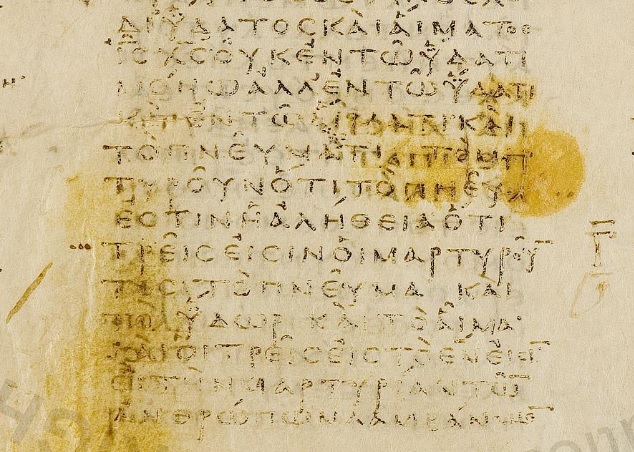 ΔΙΥΔΑΤΟϹΚΑΙΑΙΜΑΤΟϹ
ΙϹΧϹΟΥΚΕΝΤΩΥΔΑΤΙ
ΜΟΝΩΑΛΛΕΝΤΩΥΔΑΤΙ
ΚΑΙΕΝΤΩΑΙΜΑΤΙΚΑΙ
ΤΟΠΝΕΥΜΑ
ΤΥΡΟΥΝΟΤΙΤΟΠΝΕΥΜΑ
ΕϹΤΙΝΗΑΛΗΘΕΙΑΟΤΙ
ΤΡΕΙϹΕΙϹΙΝΟΙΜΑΡΤΥΡΟΥ¯
ΤΕϹΤΟΠΝΕΥΜΑ ΚΑΙ
ΤΟΥΔΩΡΚΑΙΤΟΑΙΜΑ·
ΚΑΙΟΙΤΡΕΙϹΕΙϹΤΟΕΝΕΙϹΙ¯
ΕΙΤΗΝΜΑΡΤΥΡΙΑΝΤΩ¯
ΑΝΘΡΩΠΩΝΛΑΜΒΑΝΟ